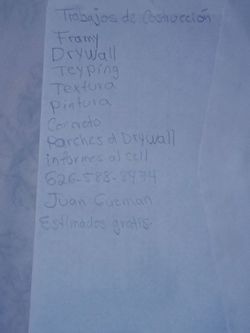 Trabajos de Costrucción
Framy
Drywall
Teyping
Textura
Pintura
Concreto
Parches d Drywall
informes al cell
626-588-8474
Juan Guzman
Estimados gratis.